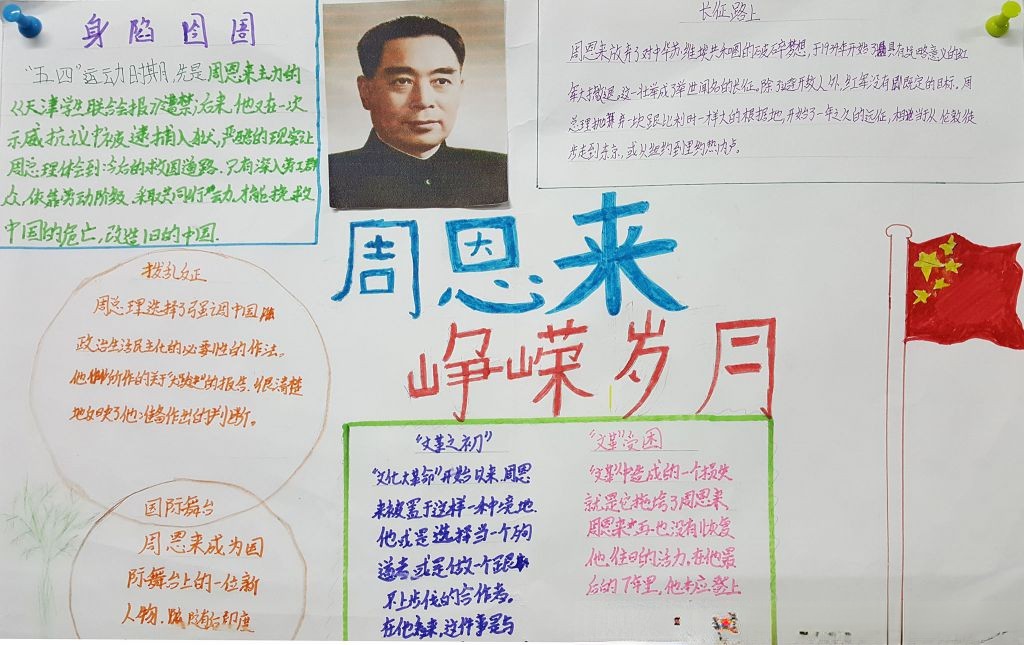 身陷囹圄
"五四"运动时期,先是周恩来主力的
《天津学生联合会报》遭禁,后来,他又在一次
示威抗议中被逮捕入狱,严酷的现实让
周总理体会到:今后的救国道路.只有深入劳工群
众,依靠劳动阶级.采取共同行动,才能挽救
中国的危亡,改造旧的中国.
长征路上
周恩来放弃了对中华苏维埃共和国的破碎梦想,于1934年开始了具有战略意义的红
军大撤退,这一壮举成了举世闻名的长征。除了逃避敌人外,红军没有既定的目标.周
总理抛弃一块跟比利时一样大的根据地,开始了一年之久的远征,相当于从伦敦徒
步走到东京,或从纽约到里约热内卢。
周恩来
峥嵘岁月
拨乱反正
周总理选择了强调中国
政治生活民主化的必要性的作法。
他所作的关于的报告.很清楚
地反映了他准备作出的判断。
国际舞台
周恩来成为国
际舞台上的一位新
人物.随后印度
"文革之初"
"文化大革命"开始以来.周恩
来被置于这样一种境地.
他或是选择当一个殉
道者,或是做一个跟
不上步伐的合作者。
在他看来,这件事是与
"文革"受困
"文革"中造成的一个损失
就是它拖垮了周恩来
周恩来再也没有恢复
他往日的活力.在他最
后的7年里,他本应登上